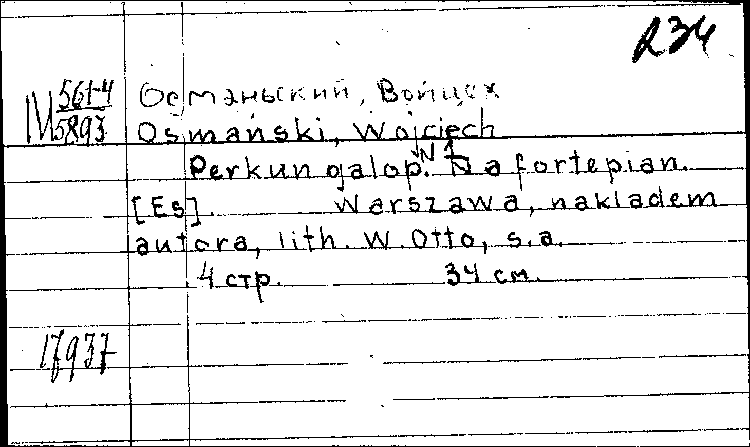 R34
М 561-4
5893
Османьский, Войцех
Osmański, Wojciech
Perkun galop. N 1 Na fortepian.
[Es]. Warszawa, nakładem
autora, lith. W. Otto, s.a.
4 стр. 34 см.
17937